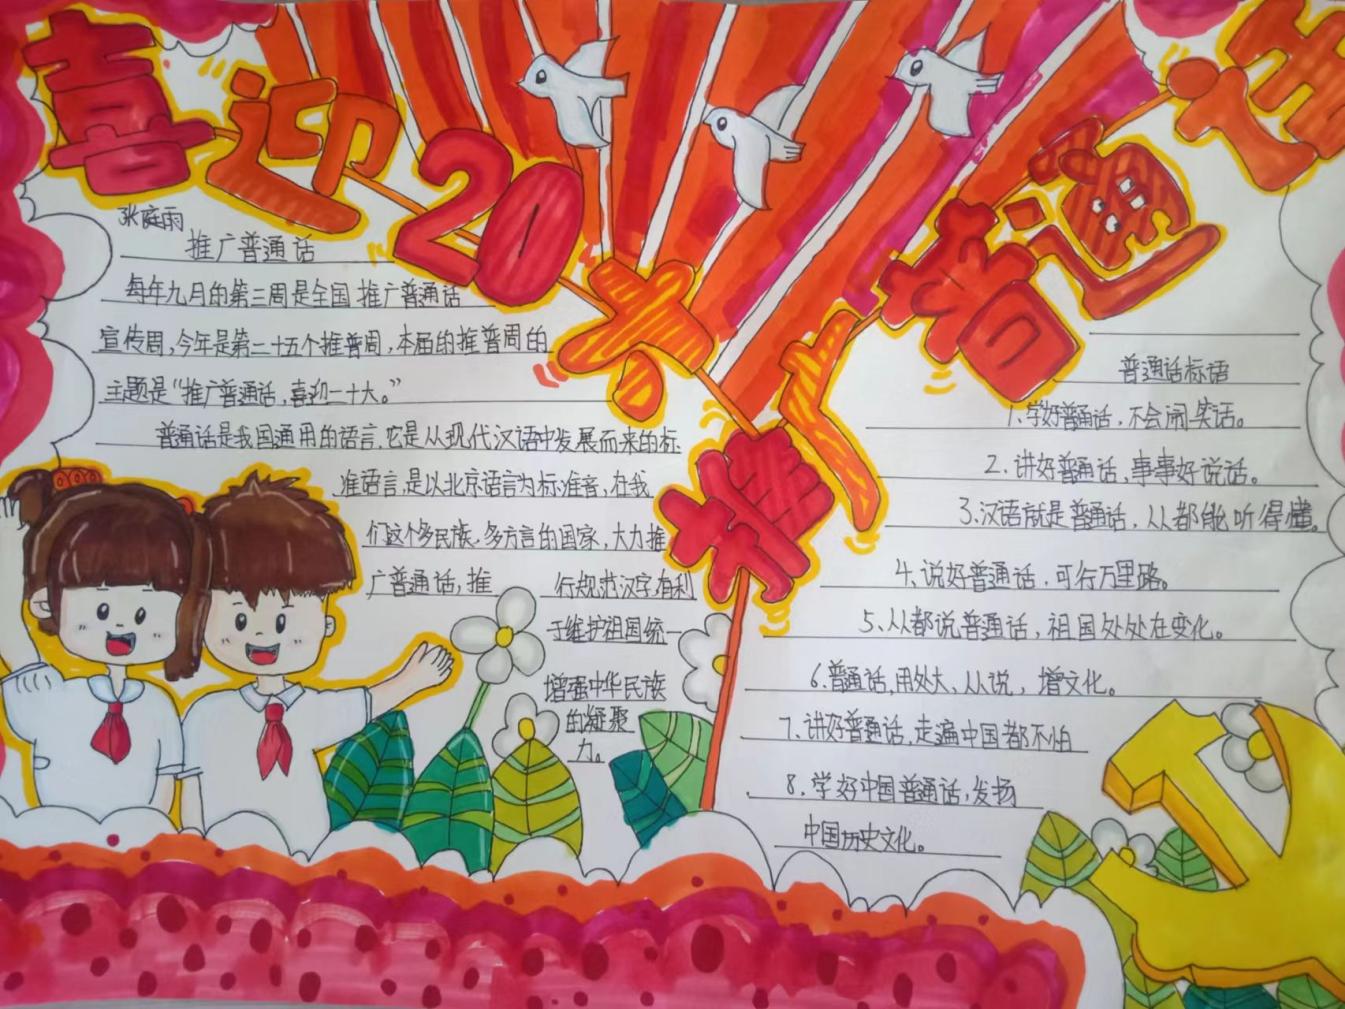 喜迎20大
推广普通话
张庭雨
推广普通话
每年九月的第三周是全国推广普通话
宣传周,今年是第二十五个推普周,本届的推普周的
主题是“推广普通话,喜迎二十大。”
普通话是我国通用的语言,它是从现代汉语中发展而来的标
准语言,是以北京语言为标准音,在我
们这个多民族,多方言的国家,大力推
广普通话,推 行规范汉字,有利
于维护祖国统一
增强中华民族
的凝聚
力。
普通话标语
1.学好普通话,不会闹笑话。
2.讲好普通话,事事好说话。
3.汉语就是普通话,从都能听得懂。
4.说好普通话,可行万里路。
5、从都说普通话,祖国处处在变化。
6.普通话,用处大,从说,增文化。
7、讲好普通话,走遍中国都不怕
8.学好中国普通话,发扬
中国历史文化。